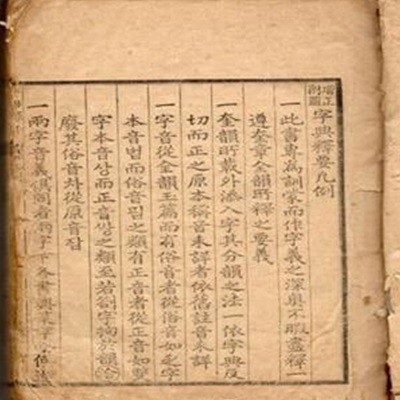 增正附圖
字典釋要凡例
一此書專爲訓蒙而作字義之深奧不暇盡釋一
遵奎章全韻所釋之要義
一奎韻所載外添入字其分韻之法一依字典反
切而正之原本稱音未詳者依舊註音未詳
一字音從全韻玉篇而有俗音者從俗音如乏字
本音법而俗音핍之類有正音者從正音如雙
字本音상而正音쌍之類至若
廢其俗音차從原音잡
一兩字音義俱同者